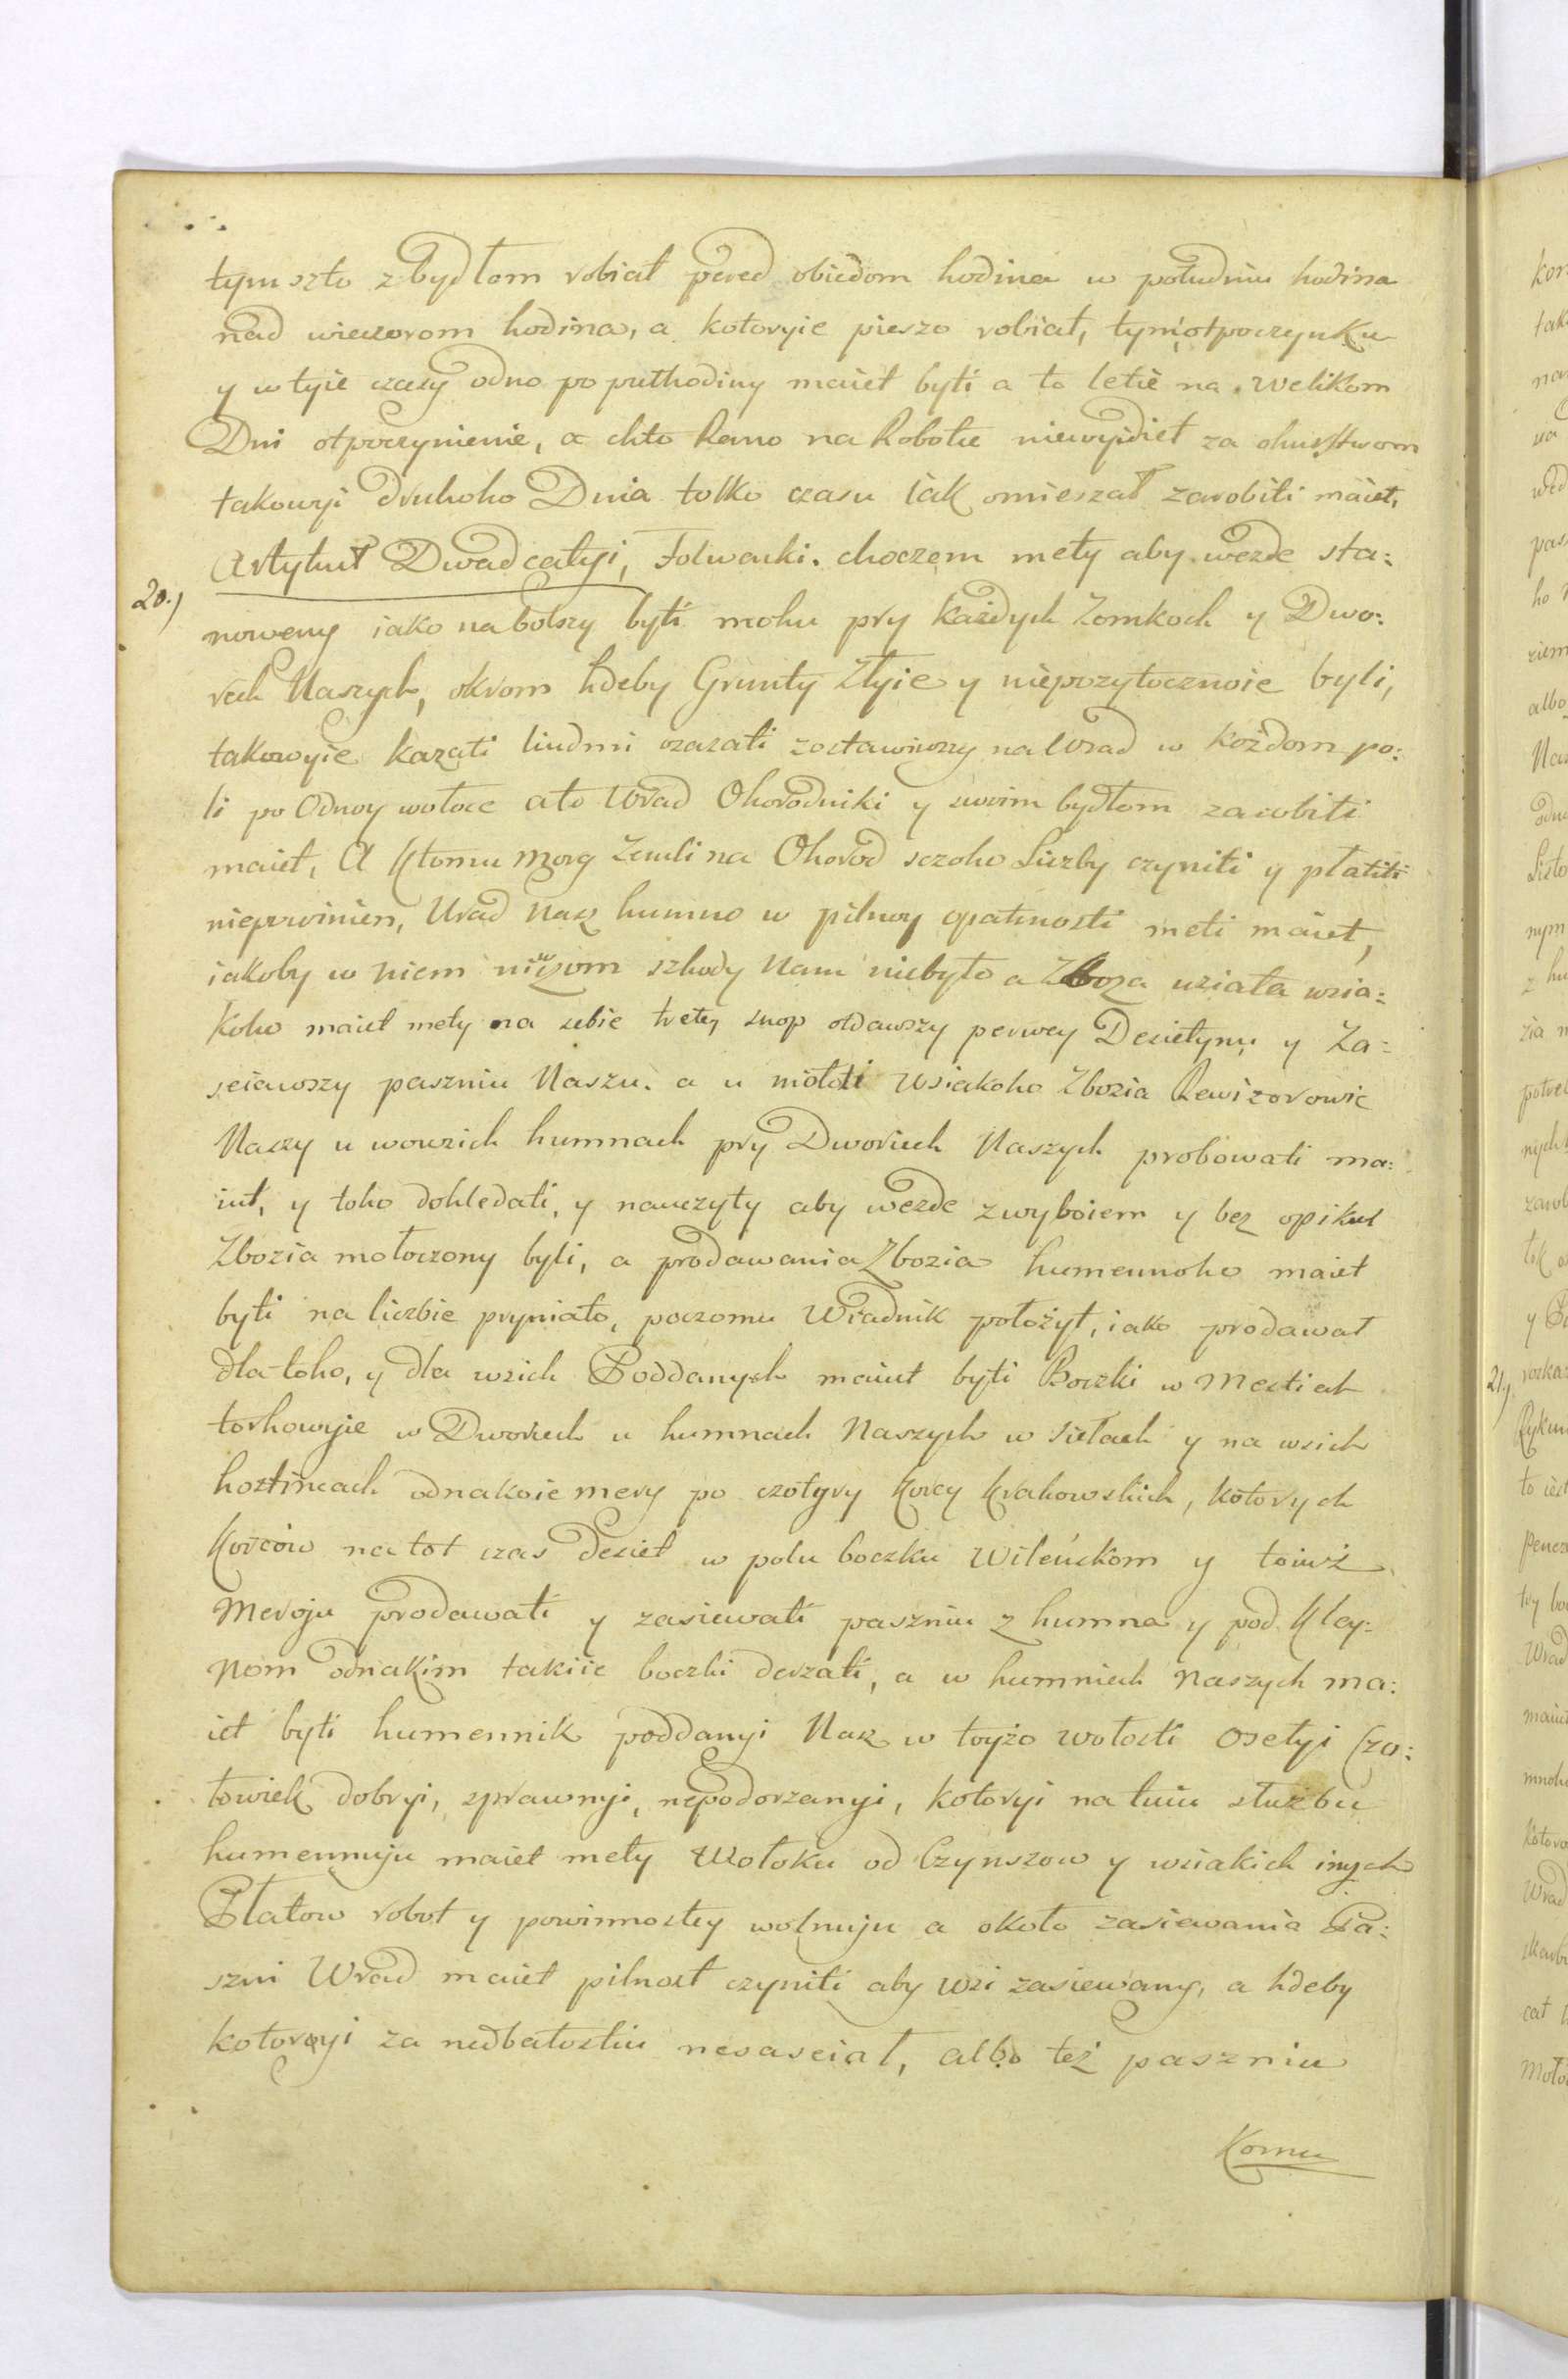 tym szto z bydłom robiat pered obiedom hodina w południu hodina
nad wieczorom hodina, a kotoryie pieszo robiat, tym otpoczynku
y w tyie czasy odno po pułhodiny maiet byti a to letie na welikom
Dni otpoczynienie, a chto Rano na Robotu niewyidiet za ohurstwom
takowyi druhoho Dnia tolko czasu iak omieszał zarobiti maiet,
20.) Artykuł Dwadcatyi, Folwarki. choczem mety aby wezde sta:
noweny iako nabolszy byti mohu pry każdych Zomkoch y Dwo:
rech Naszych, okrom hdeby Grunty Złyie y niepozytocznoie byli,
takowyie kazati liudmi osazati zostawiwszy na Wrad w każdom po:
li po Odnoy wołoce ato Wrad Ohorodniki y swoim bydłom zarobiti
maiet, A Ktomu morg Zemli na Ohorod sczoho Liczby czyniti y płatiti
niepowinien, Urad Nasz humno w pilnoy opatrnosti meti maiet,
iakoby w niem niwczom szkody Nam niebyło a Zboza uziata wsia:
koho maiet mety na sebie trety snop otdawszy perwey Desietynu y Za:
seiawszy paszniu Naszu. a u mołoti wsiakoho Zbozia Rewizorowie
Naszy u wowsich humnach pry Dworiech Naszych probowati ma:
iut, y toho dohledati, y nauczyty aby wezde z wyboiem y bez opikuł
Zbozia mołoczony byli, a prodawania Zbozia humennoho maiet
byti na liczbie pryniato, poczomu Wradnik położyt, iako prodawał
dla toho, y dla wsich Poddanych maiut byti Boczki w Mestiech
torhowyie w Dworiech u humnach Naszych w siełach y na wsich
hostincach odnakoie mery po czotyry Korcy Krakowskich, kotorych
Korcow na tot czas desiet w polu boczku Wileńskom y toiuż
Meroju prodawati y zasiewati paszniu z humna y pod Kley:
nom odnakim takiie boczki derzati, a w humniech Naszych ma:
iet byti humennik poddanyi Nasz w toyżo wołosti osetyi Czo:
łowiek dobryi, sprawnyi, nepodorzanyi, kotoryi na tuiu służbu
humennuju maiet mety Wołoku od Czynszow y wsiakich inych
Płatow robot y powinnostey wolnuju a około zasiewania Pa:
szni Wrad maiet pilnost czyniti aby wsi zasiewany, a hdeby
kotoryi za nedbałostiu nesaseiał, albo też paszniu
Komu